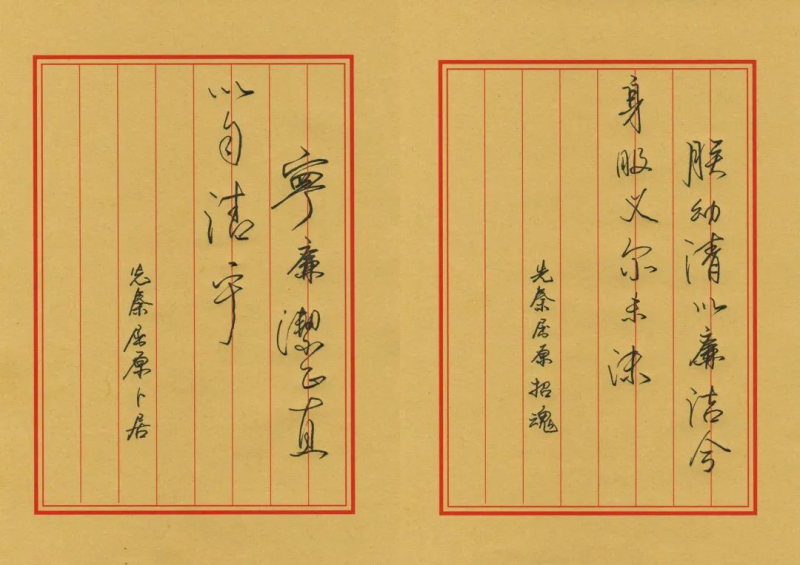 朕幼清以廉洁兮
身服义尔未沫
先秦屈原招魂
寧廉潔正直
以自清乎
先秦屈原卜居